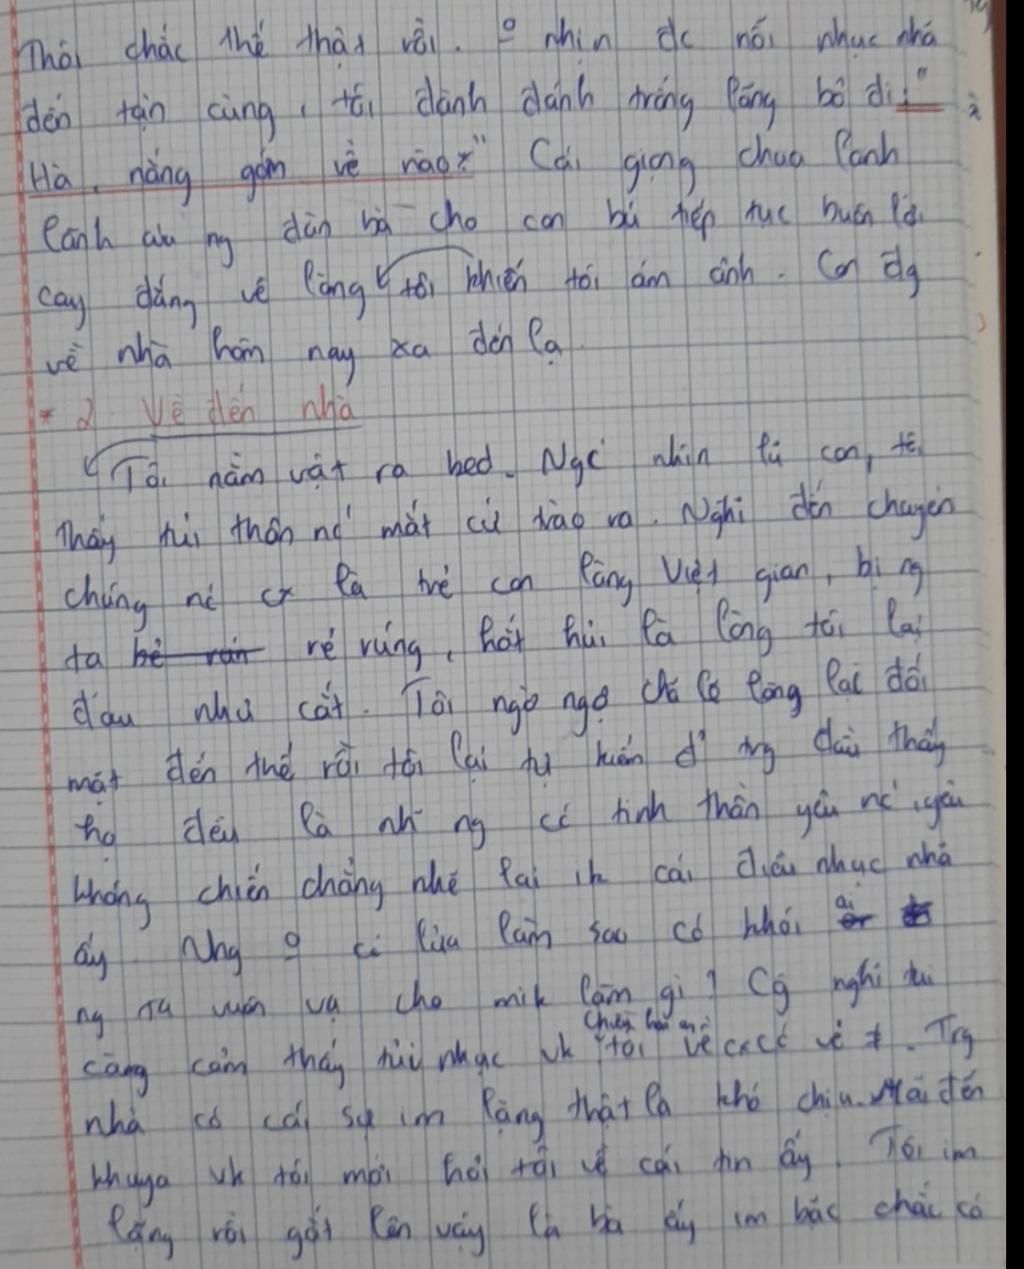 Thôi chắc thế thật rồi. o nhịn đc nỗi nhục nhã
đến tận cùng, tôi đành đánh trống lảng bỏ đi: "
Hà, nắng gớm về nào?" Cái giọng chua lanh
lảnh của ng đàn bà cho con bú tiếp tục buôn lời
cay đắng về làng tôi khiến tôi ám ảnh. Con đg
về nhà hôm nay xa đến lạ
* 2 Về đến nhà
Tôi nằm vật ra bed. Ngó nhìn lũ con, tôi
Thấy tủi thân nó mắt cứ trào ra. Nghĩ đến chuyện
chúng nó cx là trẻ con làng Việt gian, bị ng
ta rẻ rúng, hắt hủi là lòng tôi lại
đau như cắt. Tôi ngờ ngợ chả lẽ làng lại đổi
mặt đến thế rồi tôi lại tự kiểm đ' trg đầu thấy
họ đều là nh ng có tinh thần yêu nc, yêu
kháng chiến chẳng nhẽ lại ik cái điều nhục nhã
ấy Nhg o có lửa làm sao có khói ai
ng ta vu vạ cho mik làm gì? Cg nghĩ tui
càng cảm thấy tủi nhục vk tôi về
Chiều hôm ấy
Trg
nhà có cái sự im lặng thật là khó chịu. Mãi đến
khuya vk tôi mới hỏi tôi về cái tin ấy. Tôi im
lặng rồi gắt lên vậy là bà ấy im bặc chắc có